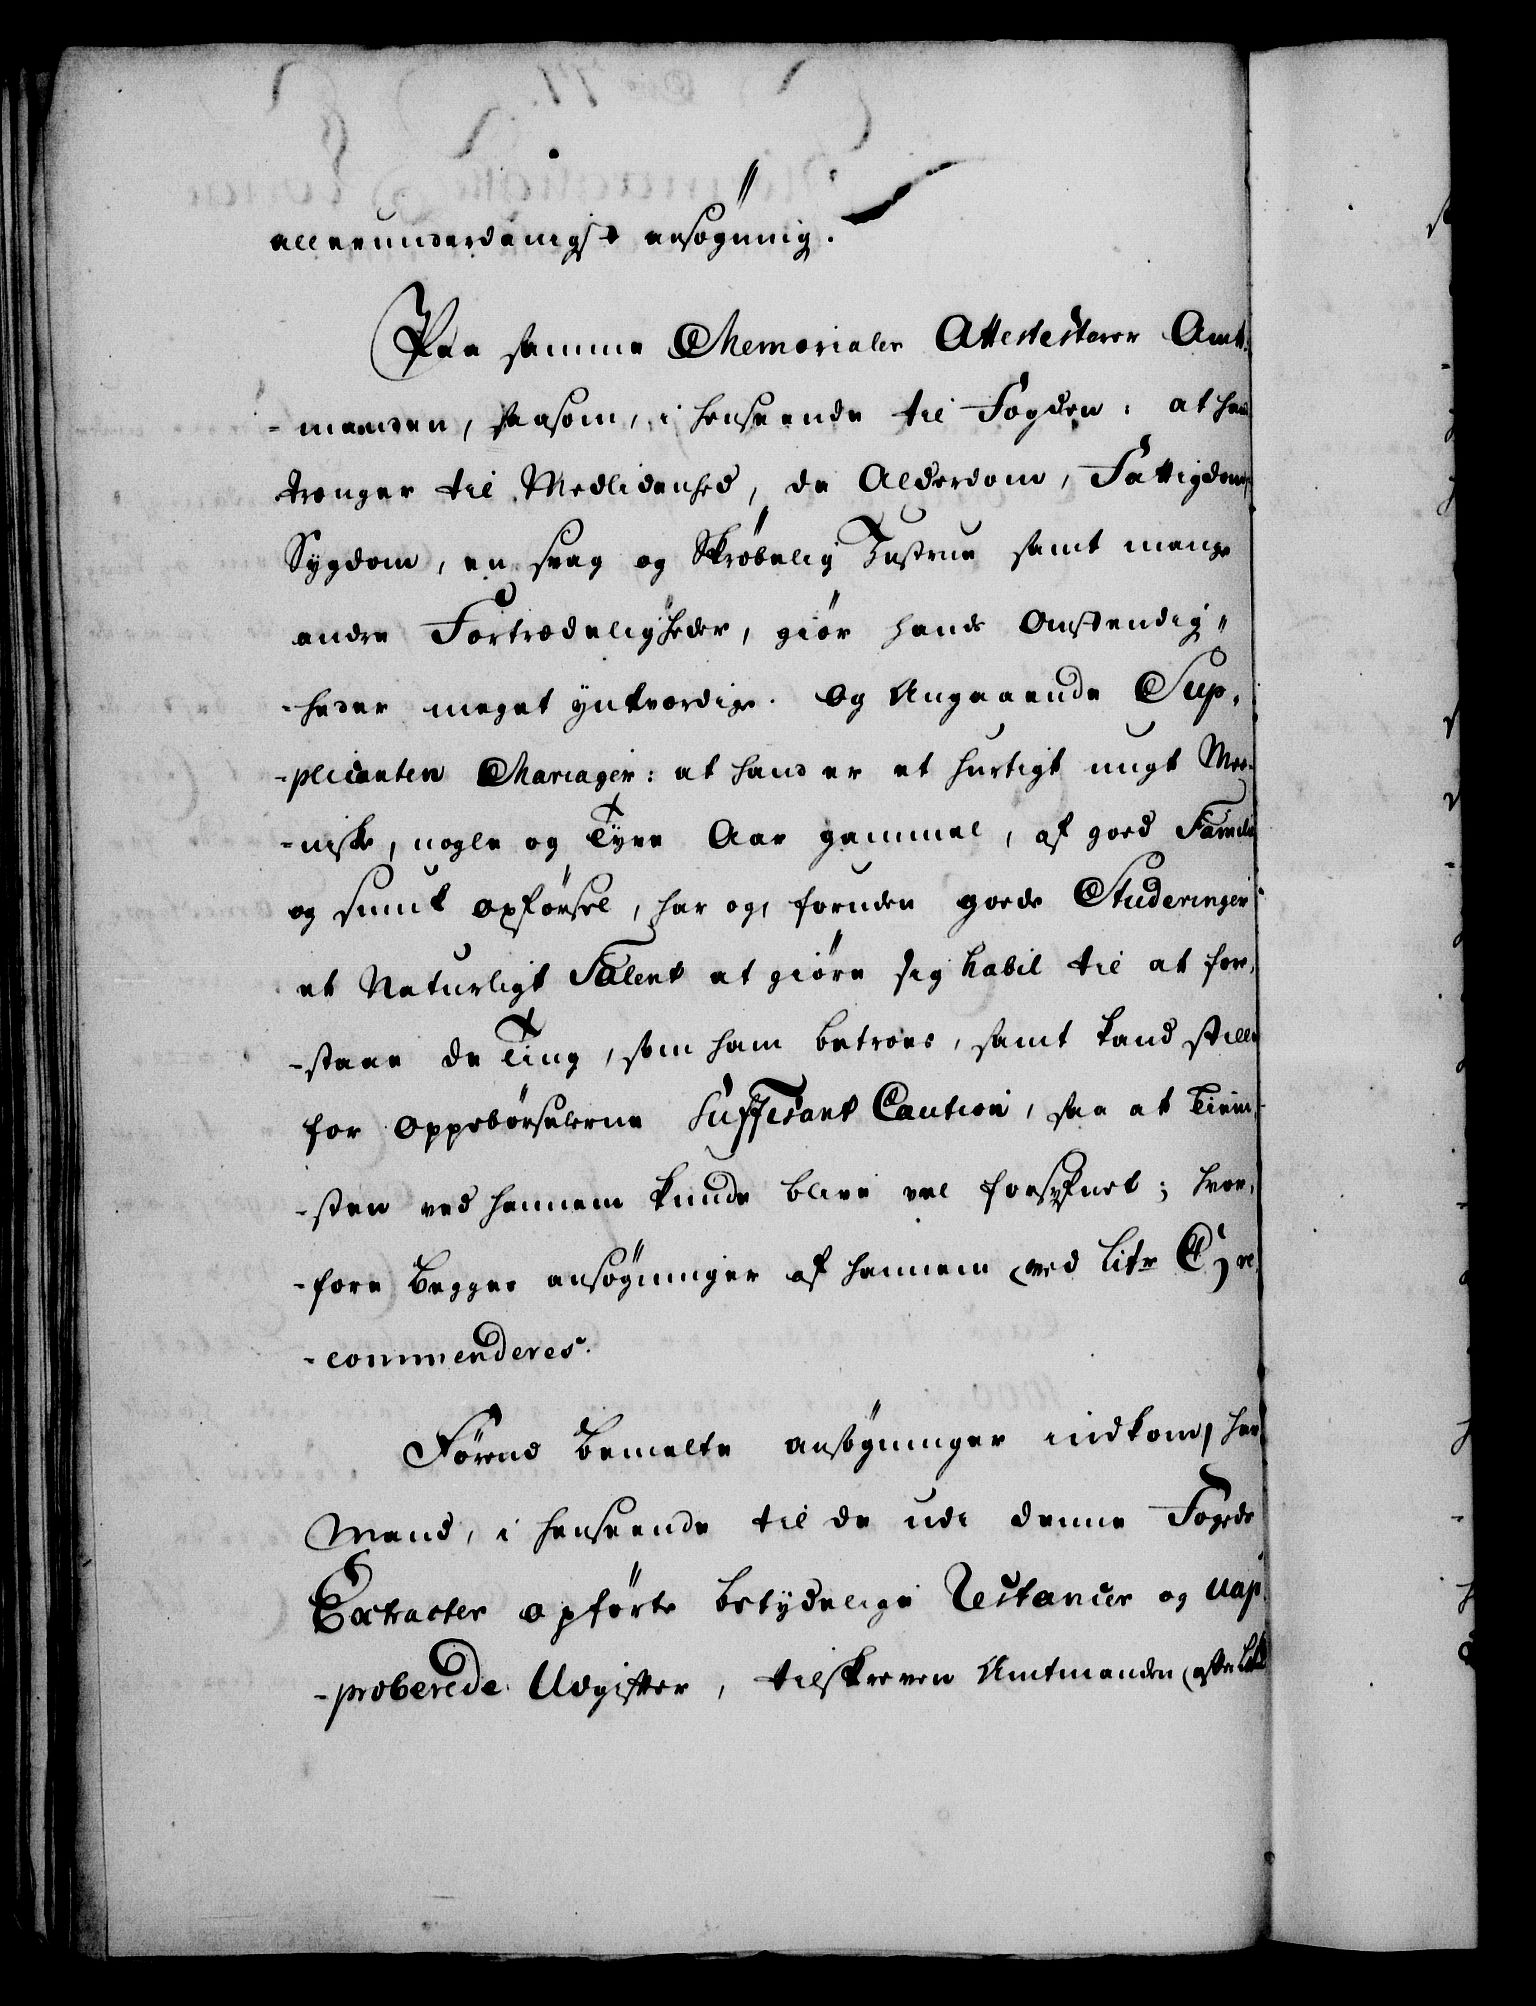 allerunderdanigst ansøgning.
Paa samme Memorialer Attestester Amt-
-manden, saasom, i henseende til Fogden: at hand
trænger til Medlidenhed, da Alderdom, Fattigdom,
Sygdom, en svag og Skrøbelig Hustrue samt mange
andre Fortrædeligheder, giør hands Omstendig-
-heder meget ynkværdige. Og Angaaende Sup-
-plicanten Mariager: at hand er et hurtigt ungt Men-
-niske, nogle og Tyve Aar gammel, af goed Familie
og smuk opførsel, har og, foruden goede Studeringer
et Naturligt Talent at giøre sig habil til at for-
-staae de Ting, som ham betroes, samt kand stille
for Oppebørselerne Suffisant Caution, saa at Tienne-
-sten ved hannem kunde blive vel forsynet; hvor-
-fore Begges ansøgninger af hannem (ved Litr C) re-
-commenderes.
Førend bemelte ansøgninger indkom, har
Mand, i henseende til de udi denne Fogeds
Extracter opførte betydelige Restancer og uap-
-proberede Udgifter, tilskreven Amtmanden (efter